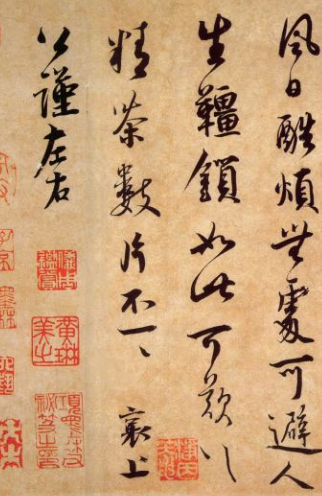 風日酷煩無處可避人
生韁鎖如此可歎以
精茶數片不一一 襄上
公謹左右